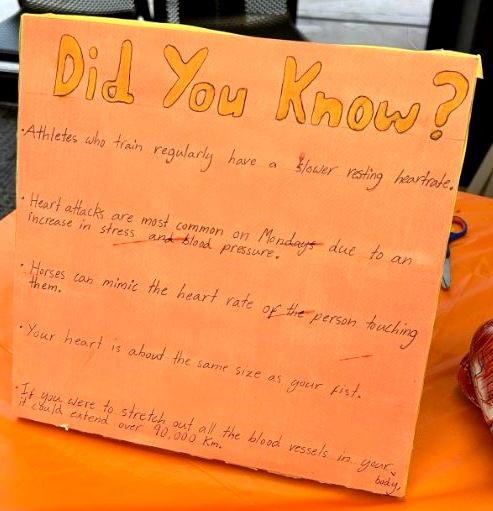 Did You Know?
• Athletes who train regularly have a slower resting heartrate.
• Heart attacks are most common on Mondays due to an
increase in stress and blood pressure.
• Horses can mimic the heart rate of the person touching
them.
• Your heart is about the same size as your fist.
• If you were to stretch out all the blood vessels in your
body,
it could extend over 90,000 km.